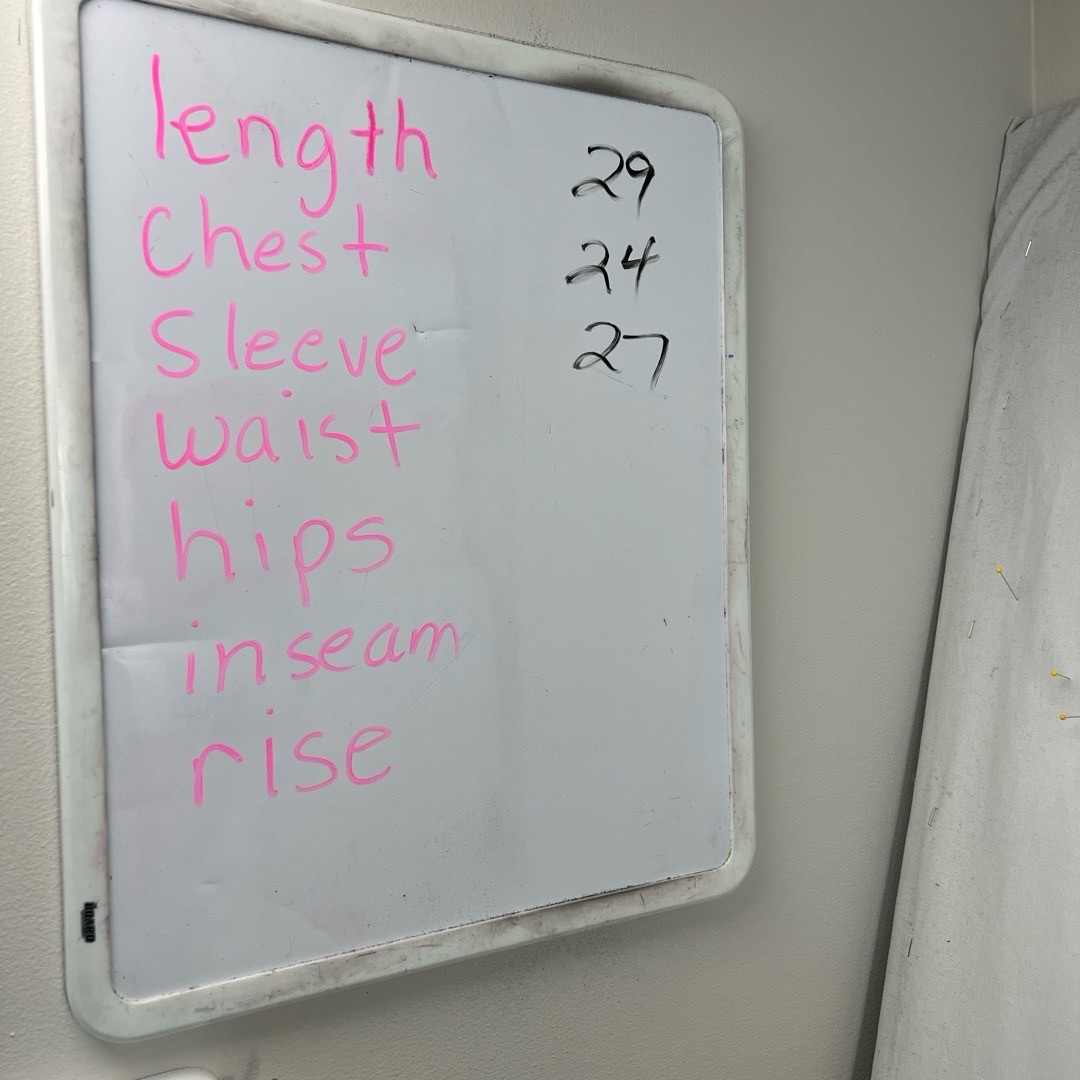 length 29
Chest 24
Sleeve 27
waist
hips
inseam
rise